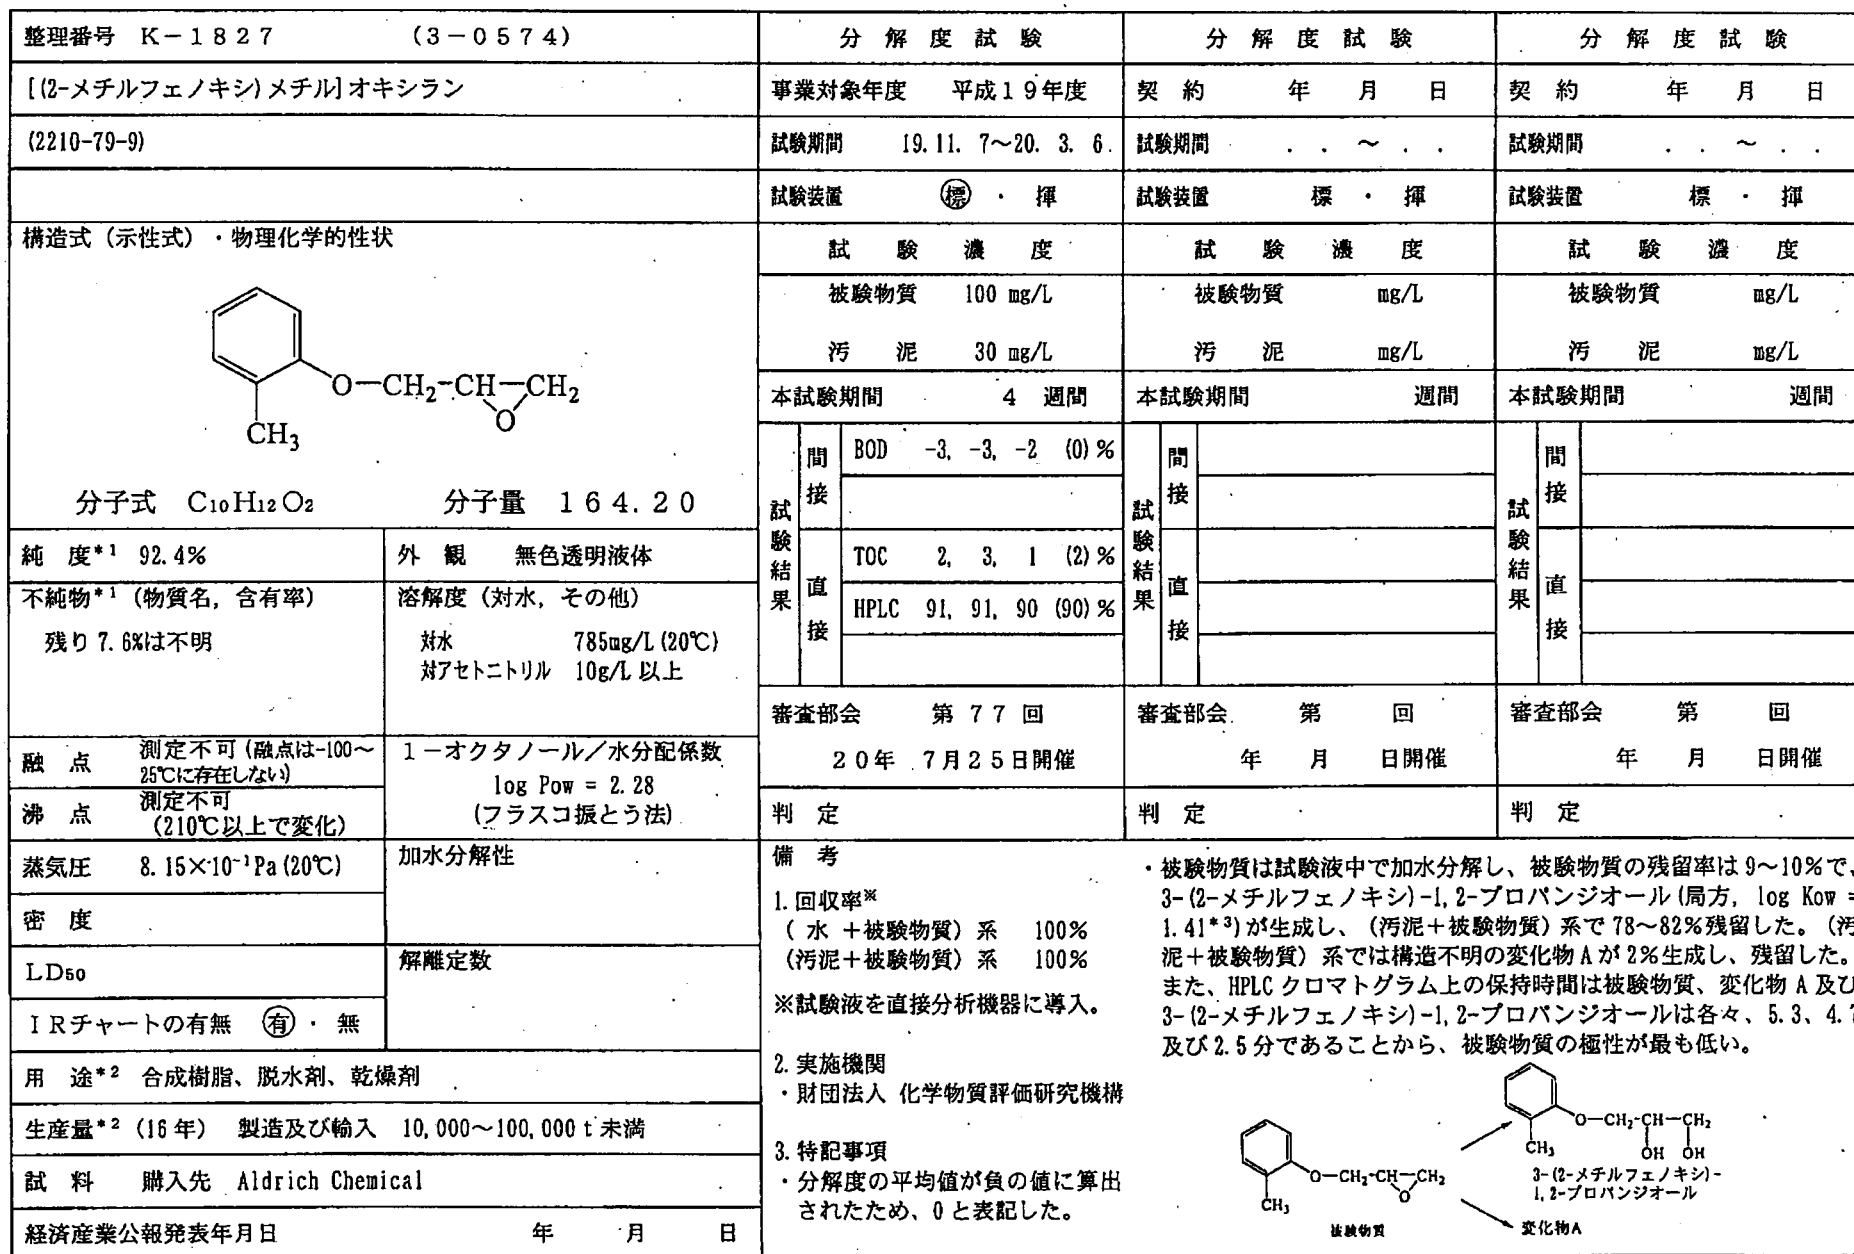 整理番号 K-1827 (3-0574)
[(2-メチルフェノキシ)メチル]オキシラン
(2210-79-9)
構造式(示性式)・物理化学的性状
O-CH2-CH-CH2
O
CH3
分子式 C10H12O2 分子量 164.20
純 度*1 92.4%
外 観 無色透明液体
不純物*1 (物質名,含有率)
残り7.6%は不明
溶解度(対水,その他)
対水 785mg/L(20℃)
対アセトニトリル 10g/L以上
融 点 測定不可(融点は-100~
25℃に存在しない)
沸 点 測定不可
(210℃以上で変化)
1-オクタノール/水分配係数
log Pow = 2.28
(フラスコ振とう法)
蒸気圧 8.15×10-1Pa(20℃)
密 度
LD50
IRチャートの有無 有・無
加水分解性
解離定数
用 途*2 合成樹脂、脱水剤、乾燥剤
生産量*2 (16年) 製造及び輸入 10,000~100,000t未満
試 料 購入先 Aldrich Chemical
経済産業公報発表年月日 年 月 日
分解度試験
事業対象年度 平成19年度
試験期間 19.11. 7~20. 3. 6.
試験装置 標・揮
試験濃度
被験物質 100 mg/L
汚 泥 30 mg/L
本試験期間 4 週間
試験結果
間接
BOD -3, -3, -2 (0)%
直接
TOC 2, 3, 1 (2)%
HPLC 91, 91, 90 (90)%
審査部会 第77回
20年 7月25日開催
判 定
分解度試験
契 約 年 月 日
試験期間 . . ~ . .
試験装置 標・揮
試験濃度
被験物質 mg/L
汚 泥 mg/L
本試験期間 週間
試験結果
間接
直接
審査部会 第 回
年 月 日開催
判 定
分解度試験
契 約 年 月 日
試験期間 . . ~ . .
試験装置 標・揮
試験濃度
被験物質 mg/L
汚 泥 mg/L
本試験期間 週間
試験結果
間接
直接
審査部会 第 回
年 月 日開催
判 定
備 考
1.回収率※
( 水 +被験物質)系 100%
(汚泥+被験物質)系 100%
※試験液を直接分析機器に導入。
2.実施機関
・財団法人 化学物質評価研究機構
3.特記事項
・分解度の平均値が負の値に算出
されたため、0と表記した。
・被験物質は試験液中で加水分解し、被験物質の残留率は9~10%で、
3-(2-メチルフェノキシ)-1,2-プロパンジオール(局方, log Kow =
1.41*3)が生成し、(汚泥+被験物質)系で78~82%残留した。(汚
泥+被験物質)系では構造不明の変化物Aが2%生成し、残留した。
また、HPLCクロマトグラム上の保持時間は被験物質、変化物A及び
3-(2-メチルフェノキシ)-1,2-プロパンジオールは各々、5.3、4.7
及び2.5分であることから、被験物質の極性が最も低い。
O-CH2-CH-CH2
CH3 OH OH
3-(2-メチルフェノキシ)-
1,2-プロパンジオール
O-CH2-CH-CH2
O
CH3
被験物質
変化物A